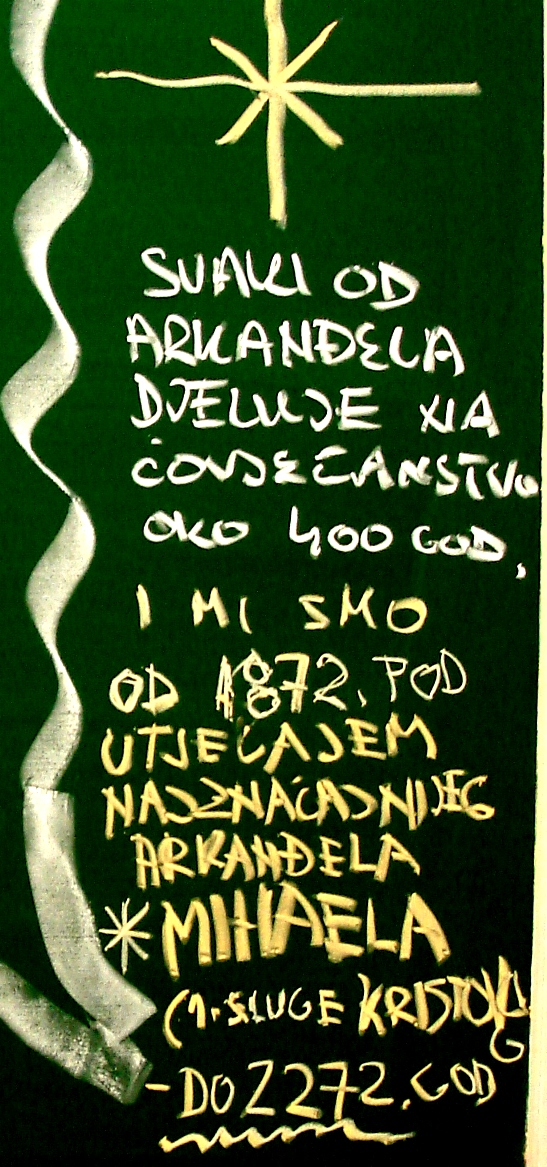 SVAKI OD
ARKANĐELA
DJELUJE NA
ČOVJEČANSTVO
OKO 400 GOD.,
I MI SMO
OD 1872. POD
UTJECAJEM
NAJZNAČAJNIJEG
ARKANĐELA
* MIHAELA
(1. SLUGE KRISTOVOG
- DO 2272. GOD